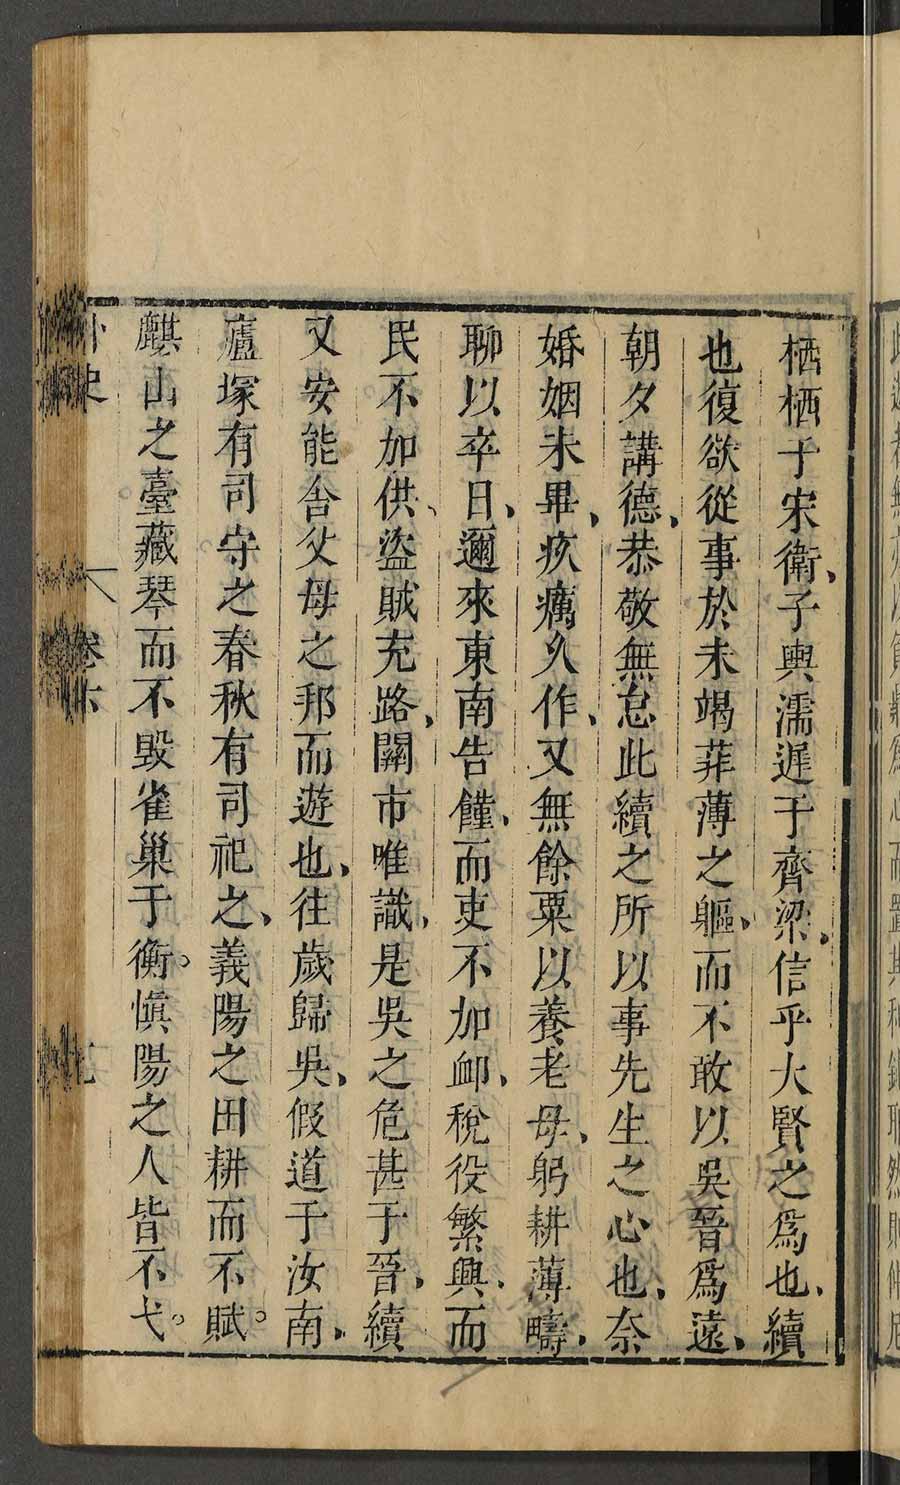 栖栖于宋衛、子輿濡遲于齊梁、信乎大賢之爲也、續
也復欲從事於未竭菲薄之軀、而不敢以吳晉爲遠、
朝夕講德、恭敬無怠此續之所以事先生之心也、奈
婚姻未畢、疚癘久作、又無餘粟以養老母、躬耕薄疇、
聊以卒日、邇來東南告饉、而吏不加䘏、稅役繁興、而
民不加供、盜賊充路、關市唯譏、是吳之危甚于晉、續
又安能舍父母之邦而遊也、往歲歸吳、假道于汝南、
廬塚有司守之春秋有司祀之、義陽之田耕而不賦。
麒山之臺。藏琴而不毀雀巢于衡。愼陽之人皆不弋。
外史 卷六